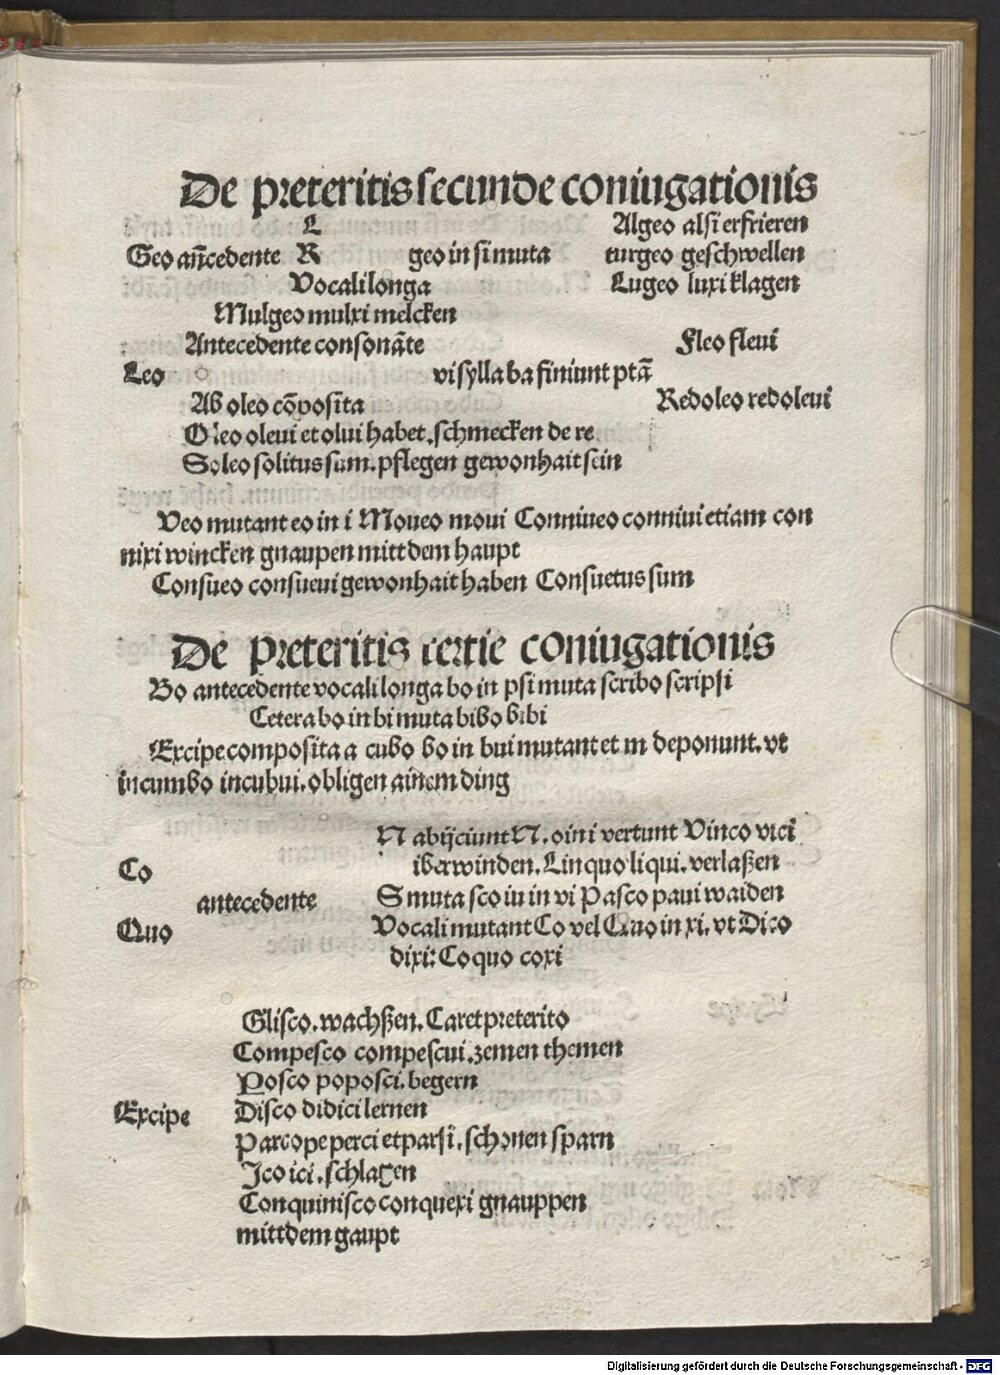 De preteritis secunde coniugationis
L Algeo alsi erfrieren
Geo añcedente R geo in si muta turgeo geschwellen
Vocali longa Lugeo luxi klagen
Mulgeo mulxi melcken
Antecedente consonāte Fleo flevi
Leo vi syllaba finiunt ptā
Ab oleo cōposita Redoleo redolevi
Oleo olevi et olui habet. schmecken de re
Soleo solitus sum. pflegen gewonhait sein
Veo mutant eo in i Moueo moui Conniueo conniui etiam con
nixi wincken gnaupen mitt dem haupt
Consueo consueui gewonhait haben Consuetus sum
De preteritis tertie coniugationis
Bo antecedente vocali longa bo in psi muta scribo scripsi
Cetera bo in bi muta bibo bibi
Excipe composita a cubo bo in bui mutant et m deponunt. vt
incumbo incubui. obligen ainem ding
N abijciunt N. o in i vertunt Vinco vici
Co iberwinden. Linquo liqui. verlaßen
antecedente S muta sco iu in vi Pasco paui waiden
Quo Vocali mutant Co vel Quo in xi. vt Dico
dixi: Coquo coxi
Glisco. wachßen. Caret preterito
Compesco compescui. zemen themen
Posco poposci. begern
Excipe Disco didici lernen
Parco peperci et parsi. schonen sparn
Ico ici. schlagen
Conquinisco conquexi gnauppen
mitt dem gaupt
Digitalisierung gefördert durch die Deutsche Forschungsgemeinschaft - DFG